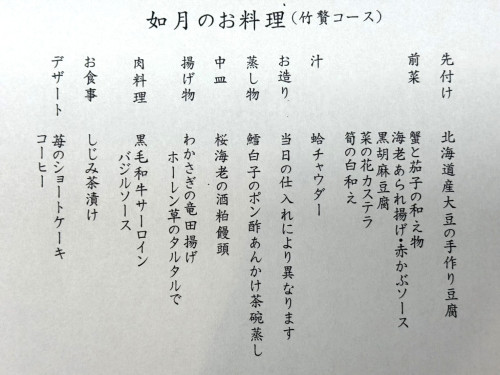 如月のお料理(竹贅コース)
先付け 北海道産大豆の手作り豆腐
前菜 蟹と茄子の和え物
海老あられ揚げ・赤かぶソース
黒胡麻豆腐
菜の花カステラ
筍の白和え
汁 蛤チャウダー
お造り 当日の仕入れにより異なります
蒸し物 鱈白子のポン酢あんかけ茶碗蒸し
中皿 桜海老の酒粕饅頭
揚げ物 わかさぎの竜田揚げ
ホーレン草のタルタルで
肉料理 黒毛和牛サーロイン
バジルソース
お食事 しじみ茶漬け
デザート 苺のショートケーキ
コーヒー